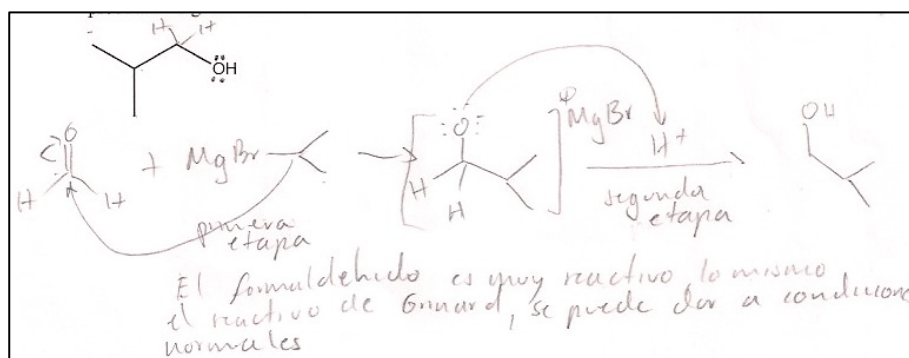 H H
OH
O
H H
+ MgBr
primera
etapa
O
H
H
⊕MgBr
H+
segunda
etapa
OH
El formaldehido es muy reactivo lo mismo
el reactivo de Grinard, se puede dar a condiciones
normales